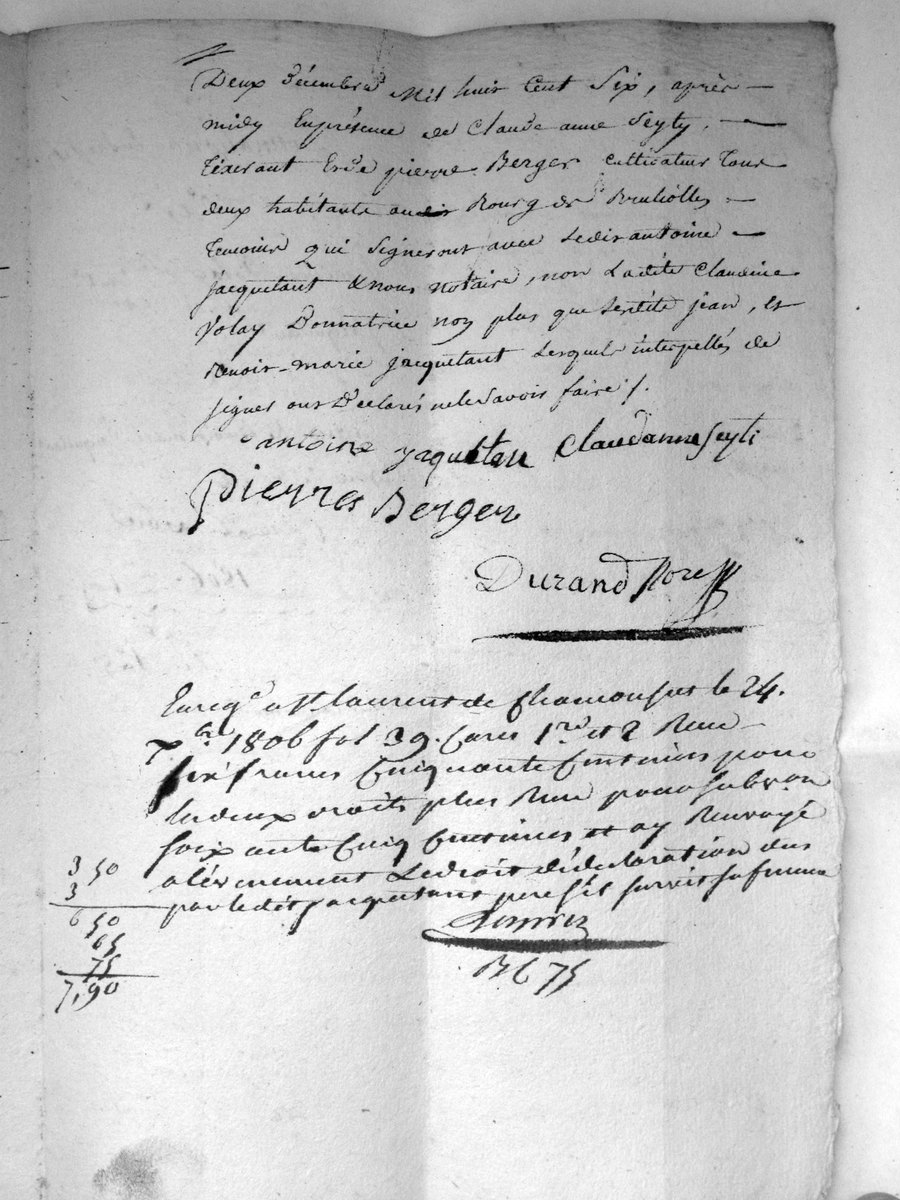 Deux décembre Mil huit Cent Six, après
midy En présence de Claude anne Seyty,
tixerant Et de pierre Berger cultivateur tous
deux habitants audit Bourg de Brulliolles
temoins qui signeront avec ledit antoine
Jacquetant & nous notaire, non Ladite Claudine
Volay Donnatrice non plus que lesdits jean, et
Benoit-marie jacquetant lesquels interpellés de
signer ont Déclarés ne le savoir faire /.
antoine jaquetan Claudanne Seyti
Pierre Berger
Durand Nore
Enregé a St laurent de Chamousset le 24.
xbre 1806 fol 39. Cases 1re et 2 Reçu
six francs Cinquante Centimes pour
les deux droits plus Reçu pour subvon
soixante Cinq Centimes et ay Renvoyé
le droit de déclaration des
par ledit jacquetant pere fils
3 50
3
6 50
65
75
7,90
B 6 75